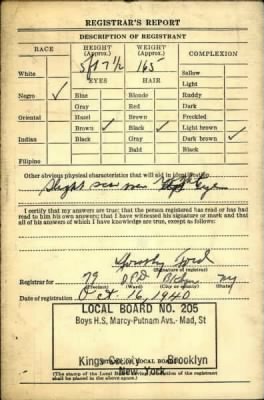 REGISTRAR'S REPORT
DESCRIPTION OF REGISTRANT
RACE
HEIGHT (Approx.)
WEIGHT (Approx.)
COMPLEXION
5 ft 7 1/2
165
White
EYES
HAIR
Sallow
Light
Negro ✓
Blue
Blonde
Ruddy
Gray
Red
Dark
Oriental
Hazel
Brown
Freckled
Brown ✓
Black ✓
Light brown
Indian
Black
Gray
Dark brown ✓
Bald
Black
Filipino
Other obvious physical characteristics that will aid in identification
Slight scar over eye
I certify that my answers are true; that the person registered has read or has had
read to him his own answers; that I have witnessed his signature or mark and that
all of his answers of which I have knowledge are true, except as follows:
(Signature of registrar)
Registrar for 79
(Precinct) (Ward) (City or county) (State)
NY
Date of registration Oct. 16, 1940
LOCAL BOARD NO. 205
Boys H.S, Marcy-Putnam Avs.- Mad, St
Kings County Brooklyn
LOCAL BOARD)
New York
(The stamp of the Local Board having jurisdiction of the registrant
shall be placed in the above space.)